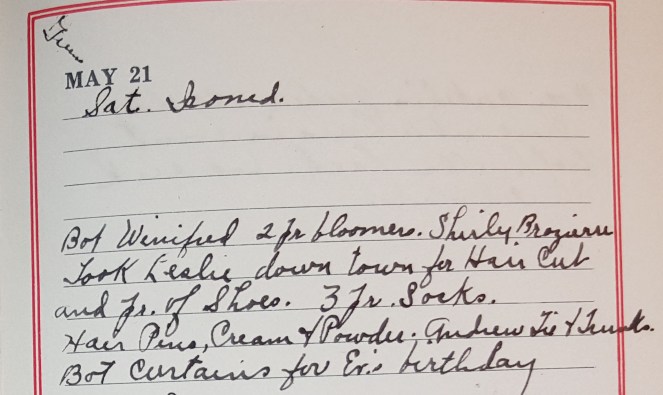 MAY 21
Sat. Ironed.
Bot Winifred 2 Pr bloomers. Shirly Brazierre
Took Leslie down town for Hair Cut
and pr. of Shoes. 3 Pr. Socks.
Hair Pins, Cream & Powder. Andrew Tie & Trunks.
Bot Curtains for Ev.s birthday